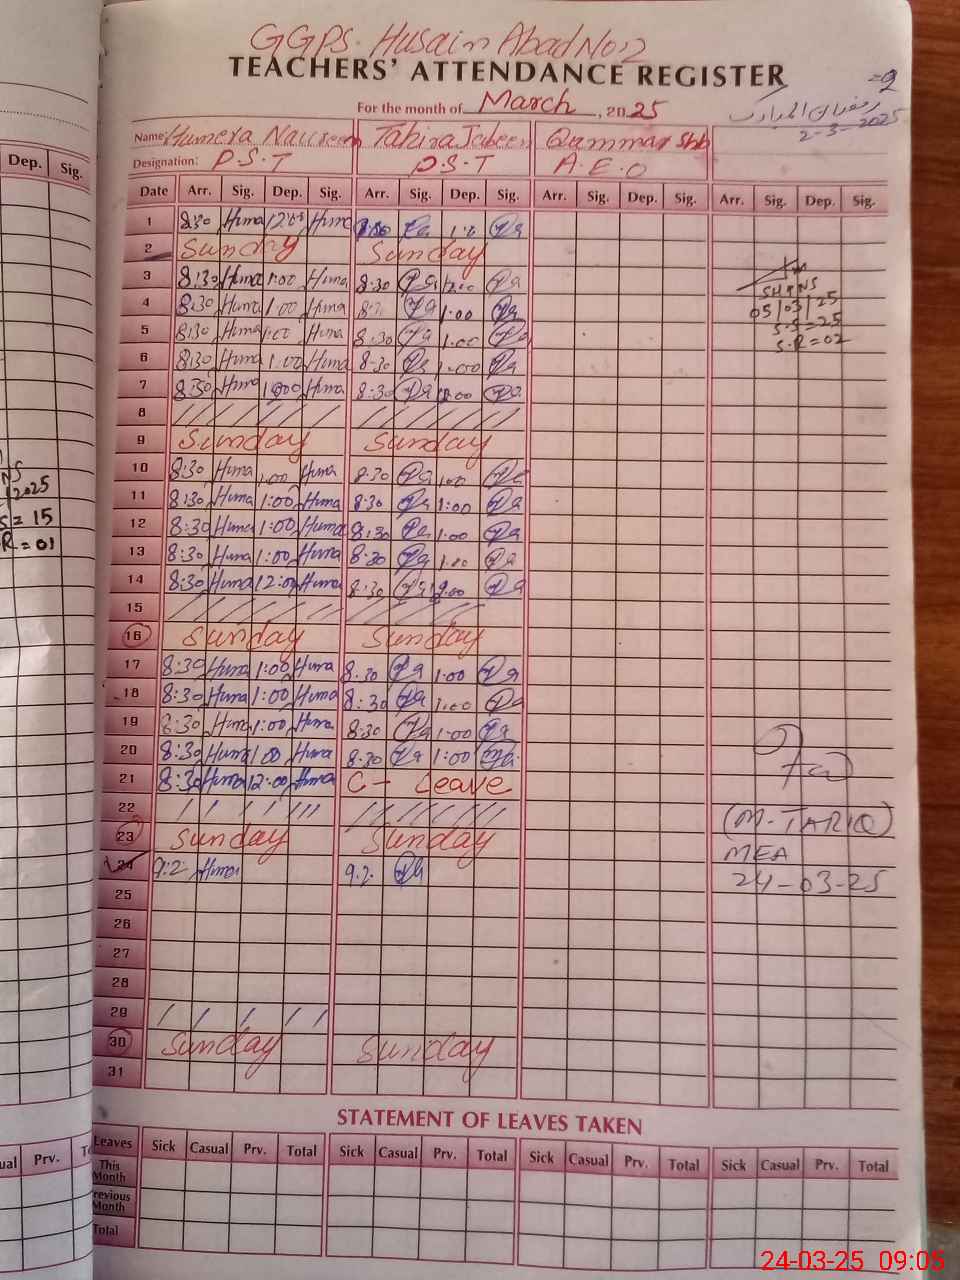 GGPS. Husain Abad No:2
TEACHERS' ATTENDANCE REGISTER
=2
For the month of March, 2025
رمضان المبارک
2-3-2025
Name: Humera Nasreen Tahira Jabeen Qammar Shb
Designation: P.S.T P.S.T A.E.O
Dep. Sig.
Date Arr. Sig. Dep. Sig. Arr. Sig. Dep. Sig. Arr. Sig. Dep. Sig. Arr. Sig. Dep. Sig.
1 8:30 Huma Huma
2 Sunday Sunday
3 8:30 Huma 1:00 Huma 8:30
4 8:30 Huma 1:00 Huma 1:00
5 8:30 Huma 1:00 Huma 8:30 1:00
6 8:30 Huma 1:00 Huma 8:30
7 8:30 Huma Huma 8:30
8
9 Sunday Sunday
10 8:30 Huma 1:00 Huma 8:30 1:00
11 8:30 Huma 1:00 Huma 8:30 1:00
12 8:30 Huma 1:00 Huma 8:30 1:00
13 8:30 Huma 1:00 Huma 8:30
14 8:30 Huma 12:00 Huma 8:30
15
16 Sunday Sunday
17 8:30 Huma 1:00 Huma 8:30 1:00
18 8:30 Huma 1:00 Huma 8:30 1:00
19 8:30 Huma 1:00 Huma 8:30 1:00
20 8:30 Huma 1:00 Huma 8:30 1:00
21 8:30 Huma 12:00 Huma C- Leave
22
23 Sunday Sunday
24 9:2 Huma 9:2
25
26
27
28
29
30 Sunday Sunday
31
05/03/25
S.S=25
S.R=02
(M-TARIQ)
MEA
24-03-25
NS
2025
S=15
R=01
STATEMENT OF LEAVES TAKEN
Leaves Sick Casual Prv. Total Sick Casual Prv. Total Sick Casual Prv. Total Sick Casual Prv. Total
This Month
Previous Month
Total
Prv.
24-03-25 09:05